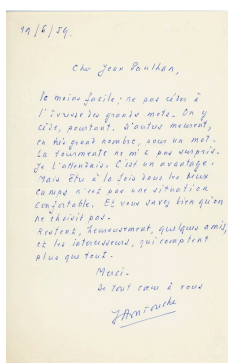 19/6/59.
Cher Jean Paulhan,
Le moins facile : ne pas céder à
l'ivresse des grands mots. On y
cède, pourtant. D'autres meurent,
en très grand nombre, sous un mot.
La tourmente ne m'a pas surpris.
Je l'attendais. C'est un avantage.
Mais être à la fois dans les deux
camps n'est pas une situation
confortable. Et vous savez bien qu'on
ne choisit pas.
Restent, heureusement, quelques amis,
et les intercesseurs, qui comptent
plus que tout.
Merci.
De tout cœur à vous